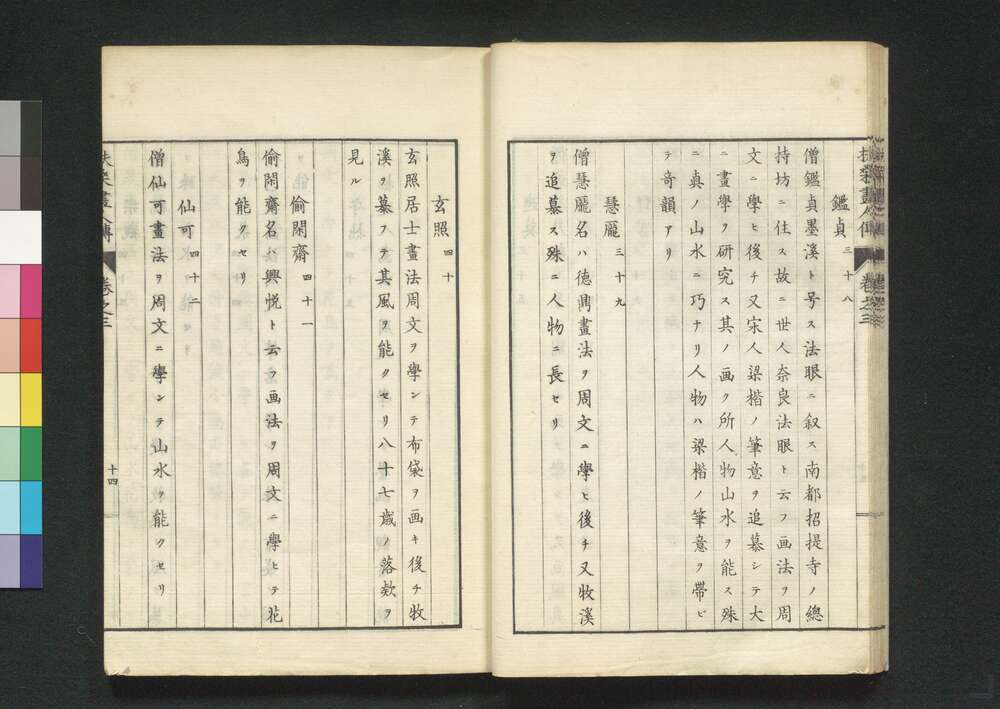 鑑貞 三十八
僧鑑貞墨溪ト号ス法眼ニ叙ス南都招提寺ノ總
持坊ニ住ス故ニ世人奈良法眼ト云フ画法ヲ周
文ニ學ヒ後チ又宋人梁楷ノ筆意ヲ追慕シテ大
ニ畫學ヲ研究ス其ノ画ク所人物山水ヲ能ス殊
ニ真ノ山水ニ巧ナリ人物ハ梁楷ノ筆意ヲ帶ビ
テ奇韻アリ
慧龎 三十九
僧慧龎名ハ德鼎畫法ヲ周文ニ學ヒ後チ又牧溪
ヲ追慕ス殊ニ人物ニ長セリ
玄照 四十
玄照居士畫法周文ヲ學ンテ布袋ヲ画キ後チ牧
溪ヲ慕フテ其風ヲ能クセリ八十七歳ノ落欵ヲ
見ル
偷閑齋 四十一
偷閑齋名ハ興悦ト云フ画法ヲ周文ニ學ヒテ花
鳥ヲ能クセリ
仙可 四十二
僧仙可畫法ヲ周文ニ學ンテ山水ヲ能クセリ
卷之三
十四